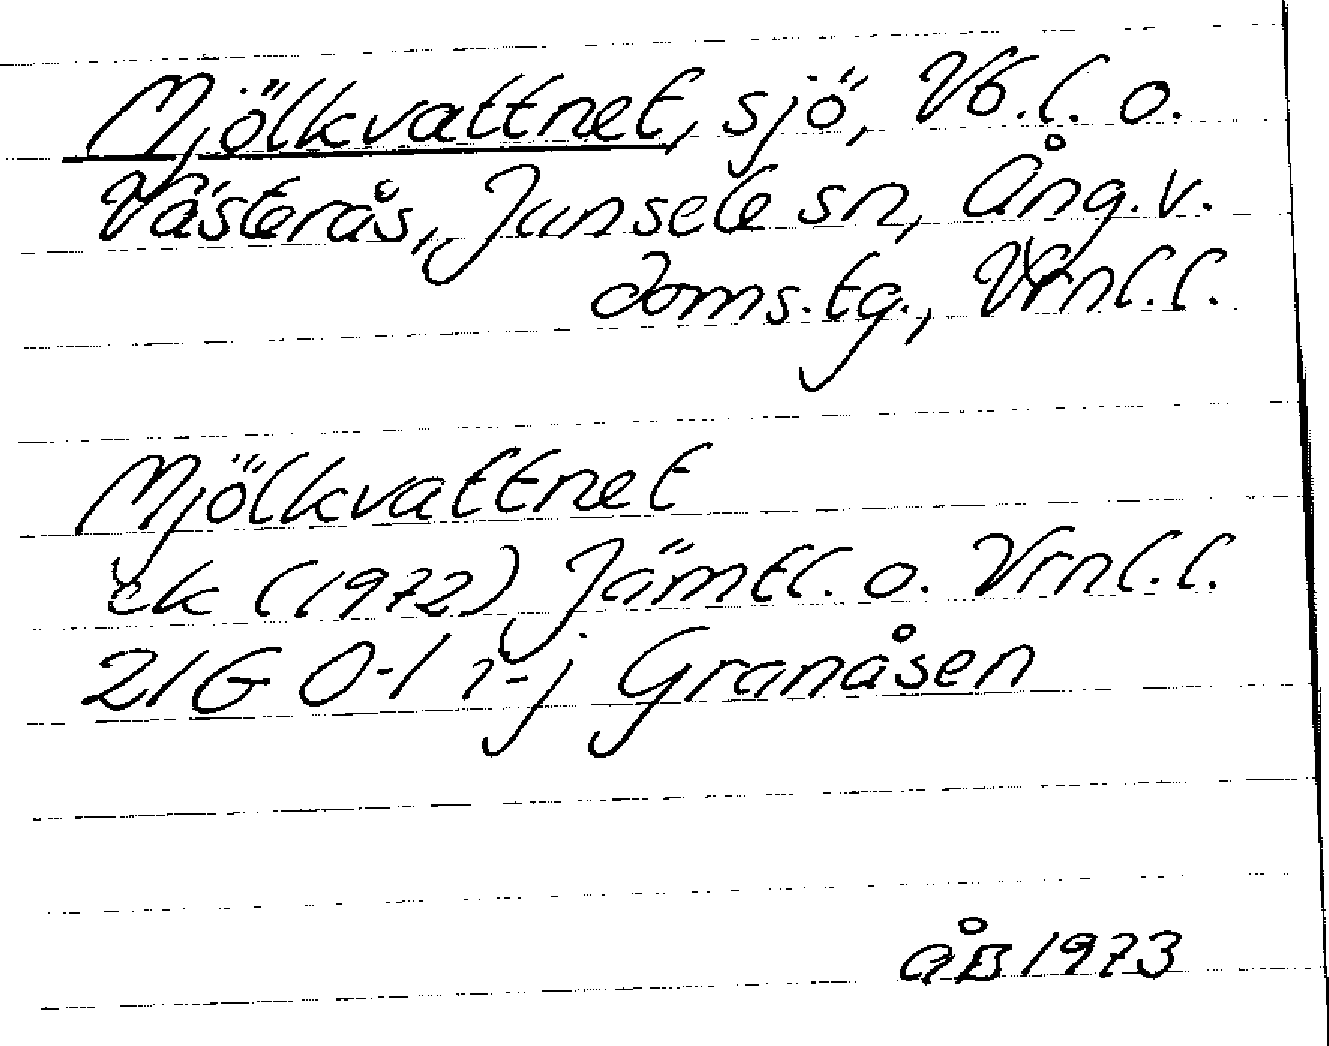 Mjölkvattnet, sjö, Vb.l. o.
Västerås, Junsele sn, Ång.v.
doms.tg., Vrnl.l.
Mjölkvattnet
ek (1972) Jämtl. o. Vrnl.l.
21G 0-1 i-j Granåsen
åB 1973